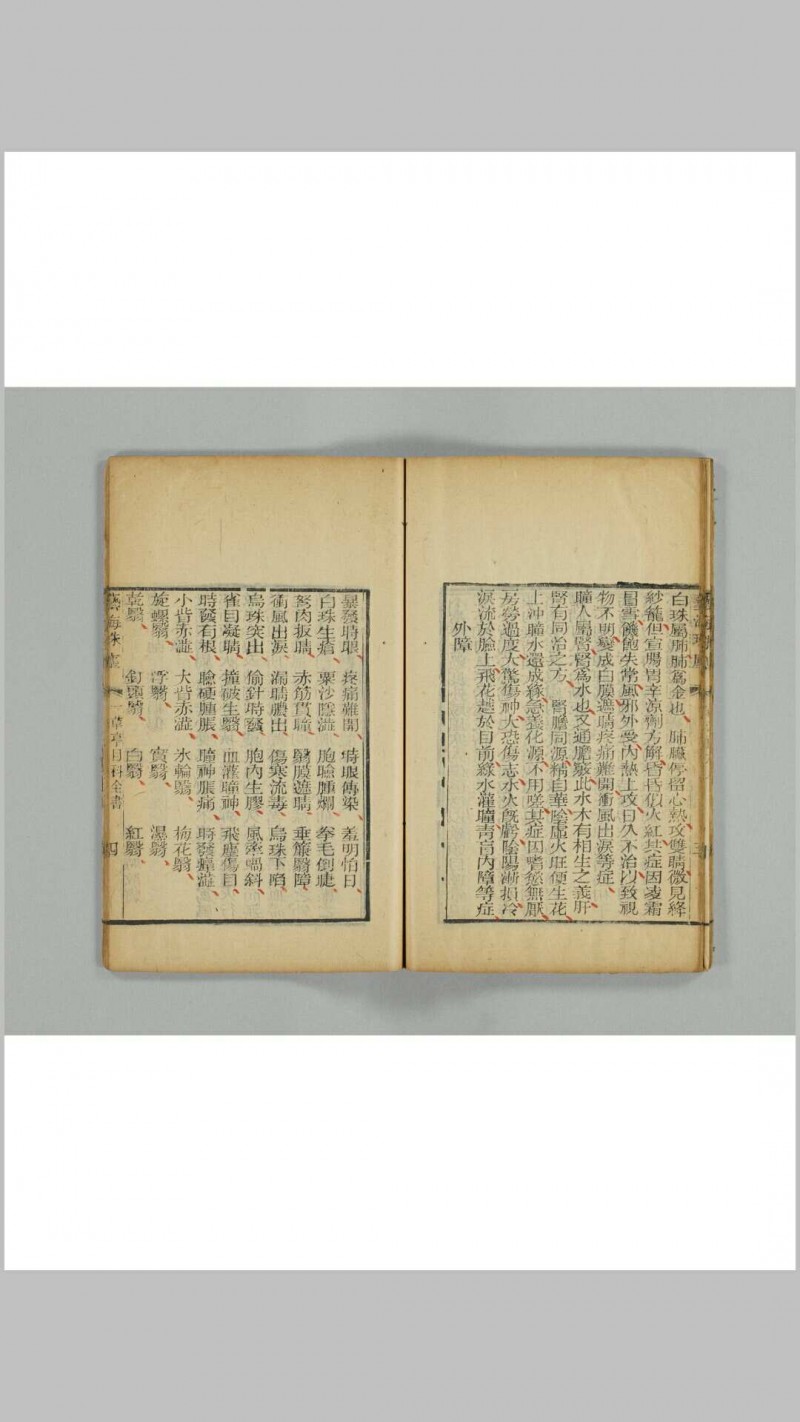 白珠屬肺肺爲金也、肺臟停留心熱攻雙睛微見絳
紗籠但宣腸胃辛涼劑方解昏昏似火紅其症因凌霜
冒雪饑飽失常風邪外受內熱上攻日久不治以致視
物不明變成白膜遮睛疼痛難開衝風出淚等症、
瞳人屬腎腎爲水也又通膽竅此水木有相生之義肝
腎有同治之方、腎膽同源精自華陰虛火旺便生花
上沖瞳水還成綠急養化源不用嗟其症因嗜慾無厭
房勞過度大驚傷神大恐傷志水火旣虧陰陽漸損冷
淚流於臉上飛花越於目前綠水灌瞳青盲內障等症、
外障
三
暴發時眼、疼痛難開、時眼傳染、羞明怕日、
白珠生瘡、粟沙隱澁、胞瞼腫爛、拳毛倒睫、
努肉扳睛、赤筋貫瞳、翳膜遮睛、垂簾翳障、
衝風出淚、漏睛膿出、傷寒流毒、烏珠下陷、
烏珠突出、偷針時發、胞內生膠、風牽喎斜、
雀目凝睛、撞破生翳、血灌瞳神、飛塵傷目、
時發有根、瞼硬腫脹、瞳神脹痛、時發痒澁、
小眥赤澁、大眥赤澁、氷輪翳、梅花翳、
旋螺翳、浮翳、實翳、混翳、
乾翳、釘頭翳、白翳、紅翳、
藝海珠塵 一草亭目科全書 四